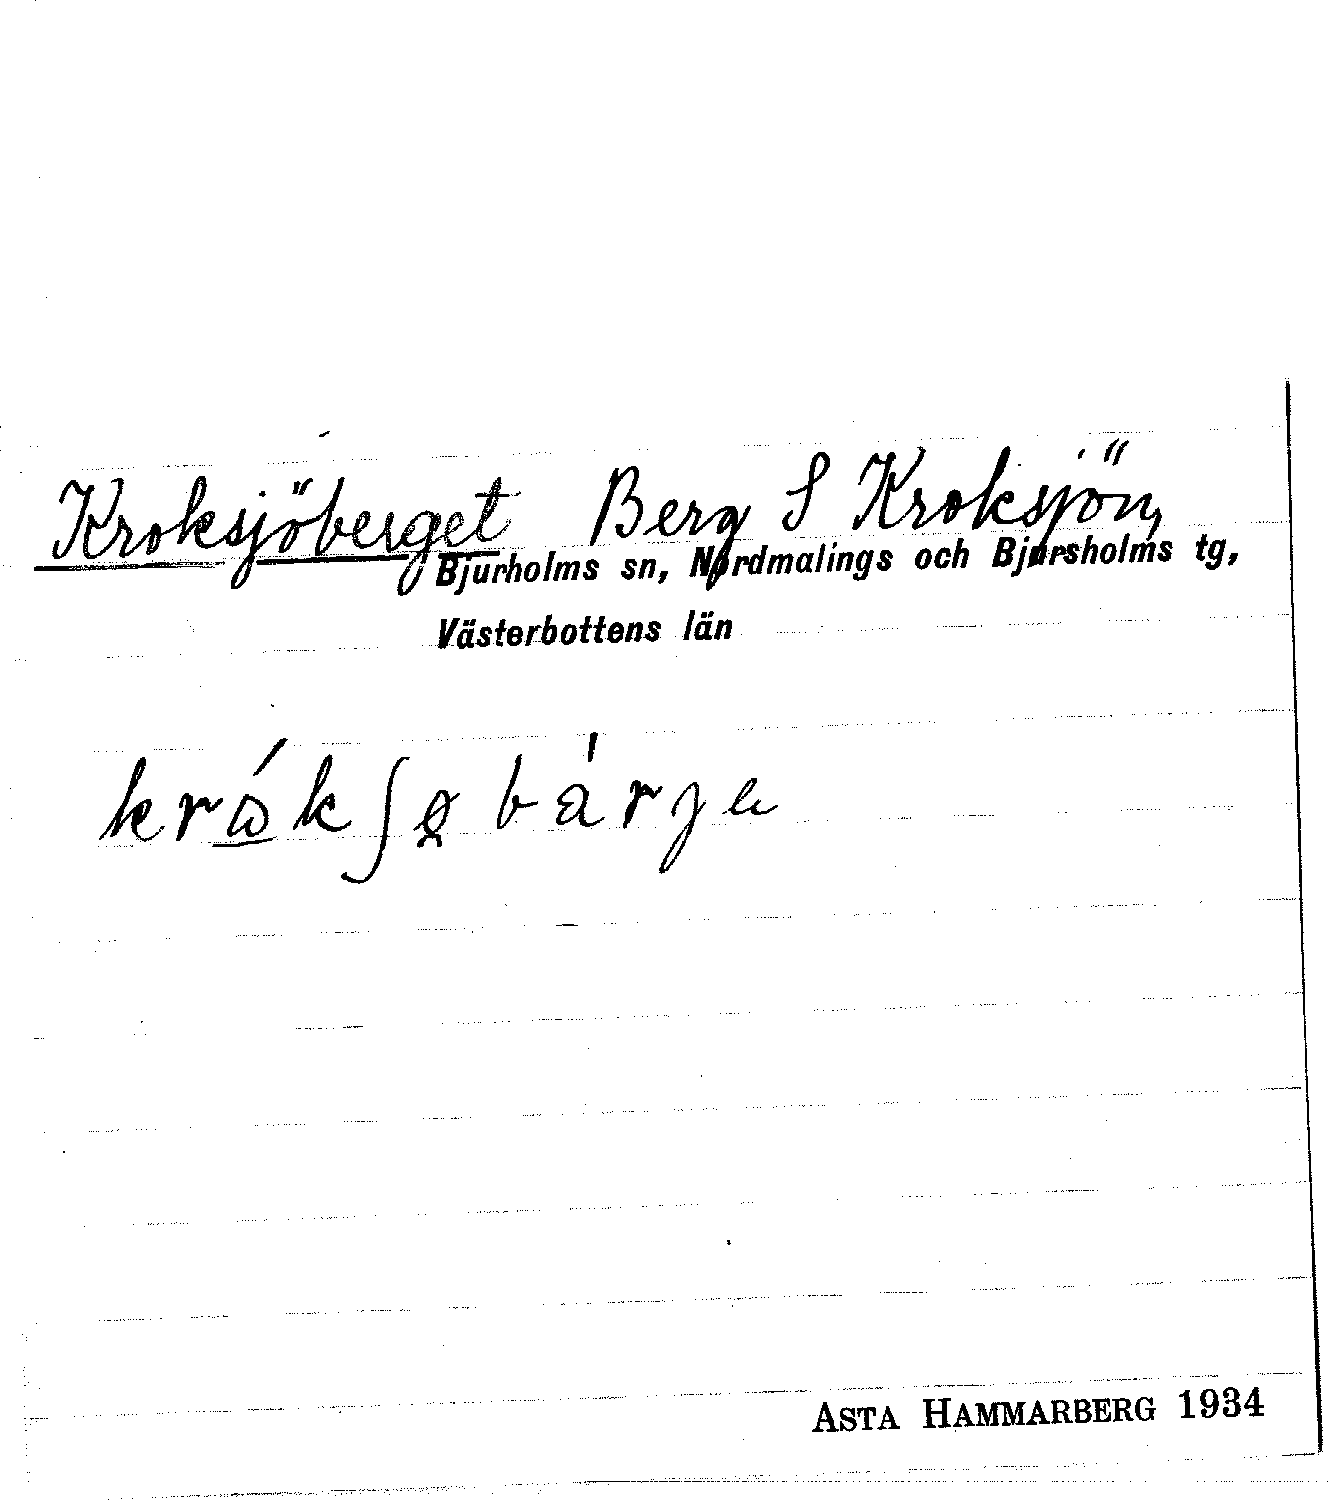 Kroksjöberget Berg S Kroksjön,
Bjurholms sn, Nordmalings och Bjursholms tg,
Västerbottens län
ASTA HAMMARBERG 1934